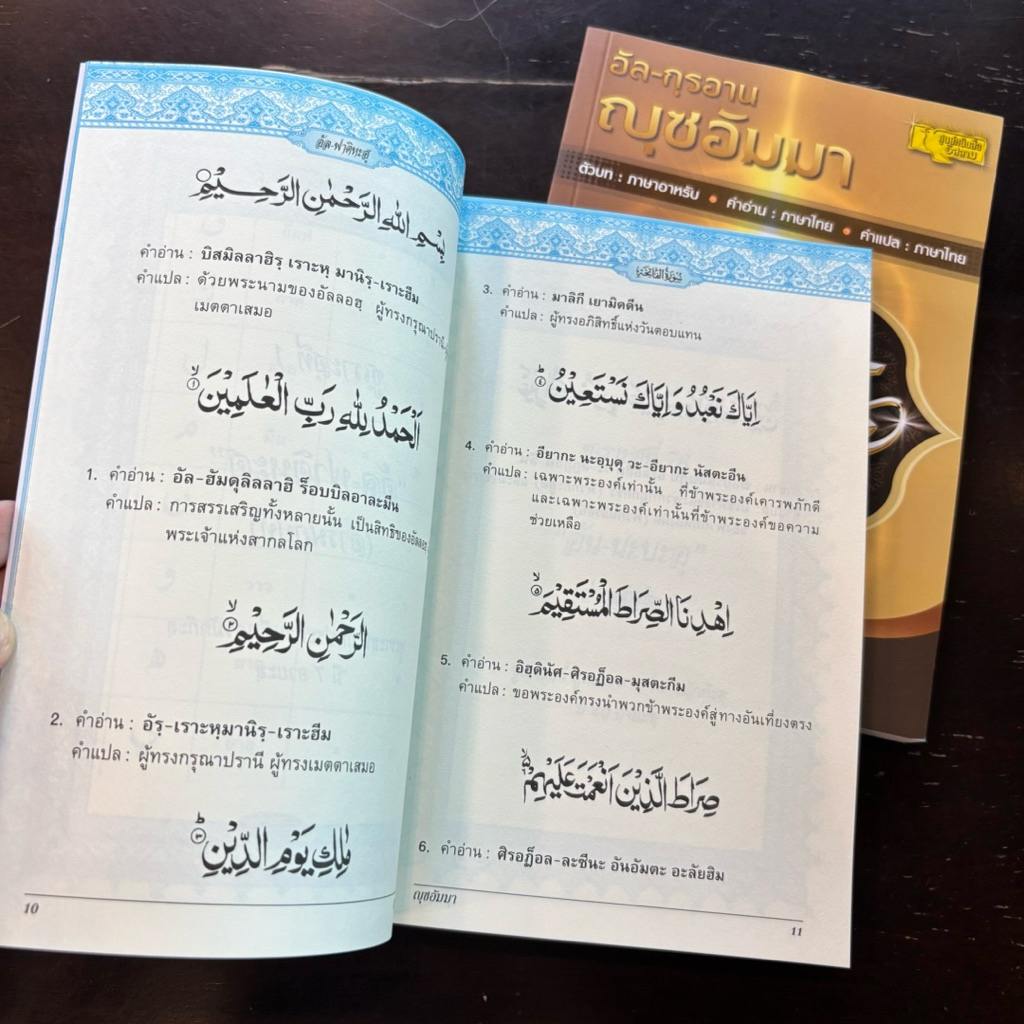 อัล-ฟาติหะฮฺ
بِسْمِ اللهِ الرَّحْمٰنِ الرَّحِيْمِ
คำอ่าน : บิสมิลลาฮิรฺ เราะหฺ มานิรฺ-เราะฮีม
คำแปล : ด้วยพระนามของอัลลอฮฺ ผู้ทรงกรุณาปรานี
เมตตาเสมอ
اَلْحَمْدُ لِلّٰهِ رَبِّ الْعٰلَمِيْنَ ۝١
1. คำอ่าน : อัล-ฮัมดุลิลลาฮิ ร็อบบิลอาละมีน
คำแปล : การสรรเสริญทั้งหลายนั้น เป็นสิทธิของอัลลอฮฺ
พระเจ้าแห่งสากลโลก
الرَّحْمٰنِ الرَّحِيْمِ ۝٢
2. คำอ่าน : อัรฺ-เราะหฺมานิรฺ-เราะฮีม
คำแปล : ผู้ทรงกรุณาปรานี ผู้ทรงเมตตาเสมอ
مٰلِكِ يَوْمِ الدِّيْنِ ۝٣
10
3. คำอ่าน : มาลิกี เยามิดดีน
คำแปล : ผู้ทรงอภิสิทธิ์แห่งวันตอบแทน
اِيَّاكَ نَعْبُدُ وَاِيَّاكَ نَسْتَعِيْنُ ۝٤
4. คำอ่าน : อียากะ นะอฺบุดุ วะ-อียากะ นัสตะอีน
คำแปล : เฉพาะพระองค์เท่านั้น ที่ข้าพระองค์เคารพภักดี
และเฉพาะพระองค์เท่านั้นที่ข้าพระองค์ขอความ
ช่วยเหลือ
اِهْدِنَا الصِّرَاطَ الْمُسْتَقِيْمَ ۝٥
5. คำอ่าน : อิฮฺดินัศ-ศิรอฏ็อล-มุสตะกีม
คำแปล : ขอพระองค์ทรงนำพวกข้าพระองค์สู่ทางอันเที่ยงตรง
صِرَاطَ الَّذِيْنَ اَنْعَمْتَ عَلَيْهِمْ
6. คำอ่าน : ศิรอฏ็อล-ละซีนะ อันอัมตะ อะลัยฮิม
ญุซอัมมา
11
อัล-กุรอาน
ญุซอัมมา
ตัวบท : ภาษาอาหรับ • คำอ่าน : ภาษาไทย • คำแปล : ภาษาไทย